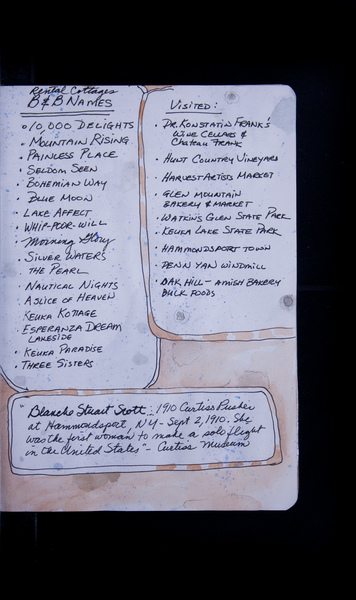 Rental Cottages
B&B NAMES
• 10,000 DELIGHTS
• MOUNTAIN RISING
• PAINLESS PLACE
• SELDOM SEEN
• BOHEMIAN WAY
• BLUE MOON
• LAKE AFFECT
• WHIP-POOR-WILL
• Morning Glory
• SILVER WATERS
• THE PEARL
• NAUTICAL NIGHTS
• A SLICE OF HEAVEN
• KEUKA KOTTAGE
• ESPERANZA DREAM
LAKESIDE
• KEUKA PARADISE
• THREE SISTERS
VISITED:
• DR. KONSTATIN FRANK'S
WINE CELLARS &
Chateau FRANK
• HUNT COUNTRY VINEYARDS
• HARVEST ARTISTS MARKET
• GLEN MOUNTAIN
BAKERY & MARKET
• WATKINS GLEN STATE PARK
• KEUKA LAKE STATE PARK
• HAMMONDSPORT TOWN
• PENN YAN WINDMILL
• OAK HILL - AMISH BAKERY
BULK FOODS
"Blanche Stuart Scott... 1910 Curtiss Pusher
at Hammondsport, NY - Sept 2, 1910. She
was the first woman to make a solo flight
in the United States" - Curtiss Museum